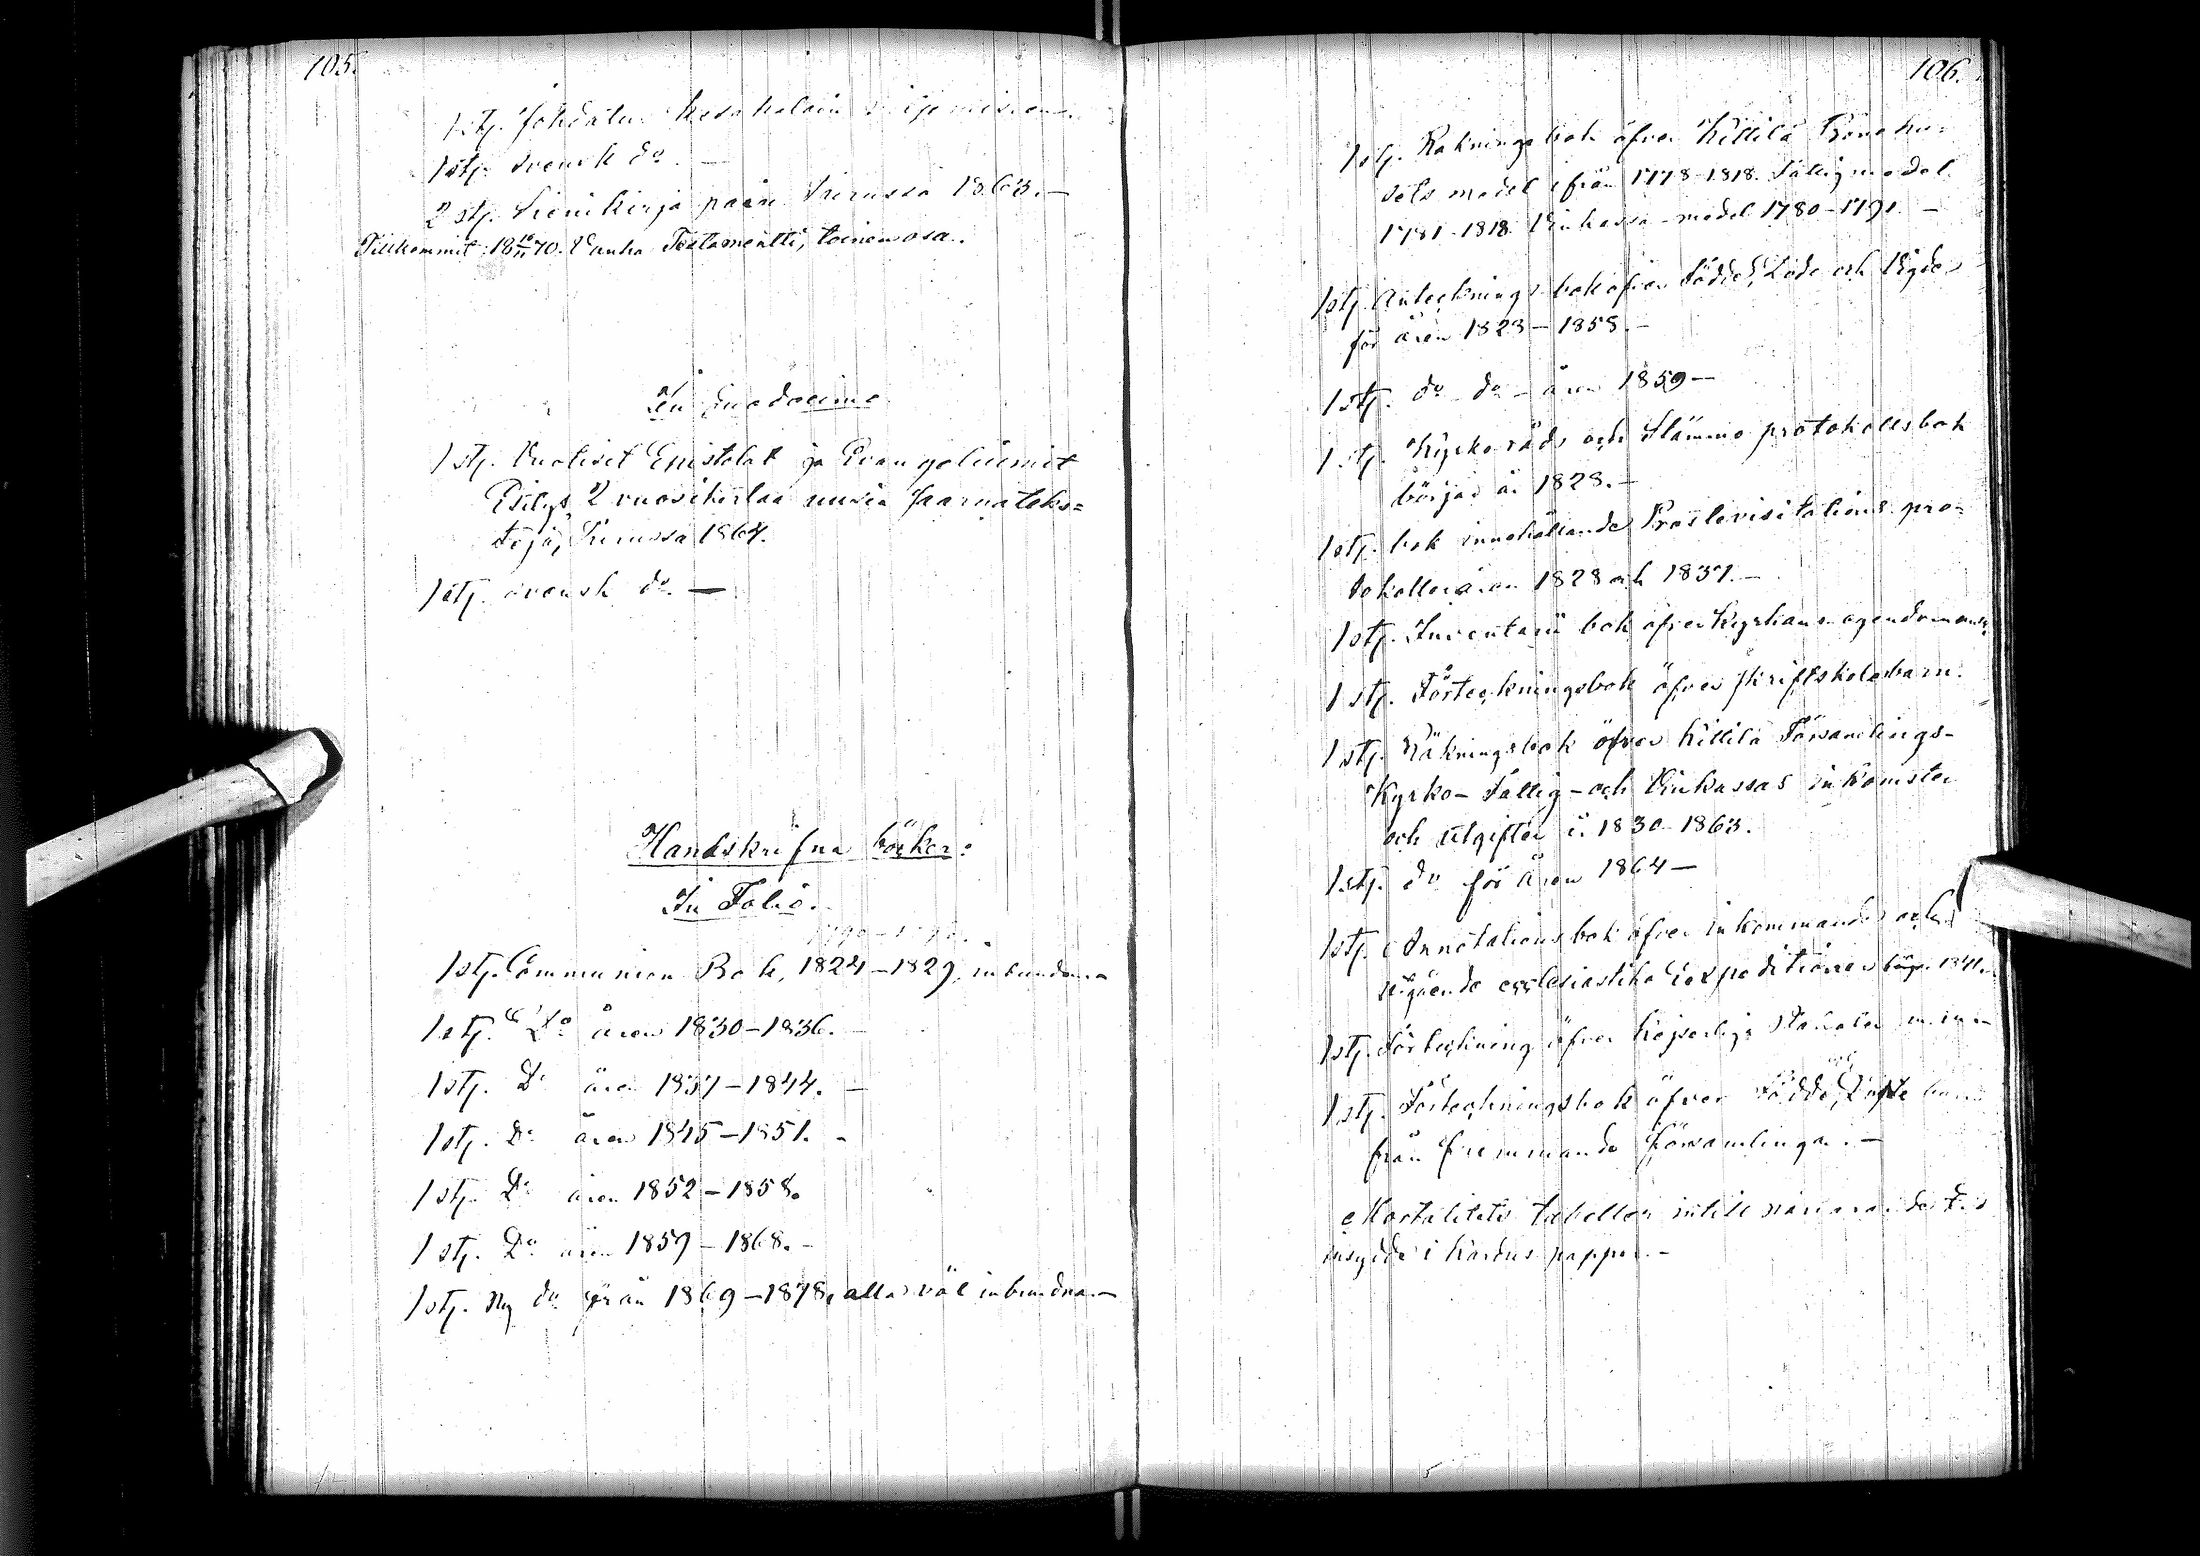 105.
1 stj. Johdatus
1 stj. svensk do. —
2 stj. Pienikirja pieni Turussa 1863. —
Tillkommit 18 16/11 70. Vanha Testamentti, toinen osa.
In duodecimo
1 stj. Vuotiset Epistolat ja Evangeliumit
2 vuosikertaa uusia saarnateks=
tejä, Turussa 1864.
1 stj. svensk do. —
Handskrifna böcker:
In Folio.
1 stj. Communion Bok, 1824–1829, inbunden.
1 stj. Do åren 1830–1836. —
1 stj. Do åren 1837–1844. —
1 stj. Do åren 1845–1851. –
1 stj. Do åren 1852–1858.
1 stj. Do åren 1859–1868. –
1 stj. Ny do från 1869–1878, alla väl inbundna. —
106.
1 stj. Räkningsbok öfver Kittilä Bönehu=
sets medel ifrån 1778–1818. Fattigmedel
1781–1818. Vinkassa-medel 1780–1791. —
1 stj. Anteckningsbok öfver Födde, Döde och Vigde
för åren 1823–1858. –
1 stj. do do – åren 1859 –
1 stj. Kyrkoråds och Stämmo protokollsbok
börjar år 1828. –
1 stj. bok innehållande Prostevisitations pro=
tokoller åren 1828 och 1837. –
1 stj. Inventarii bok öfver Kyrkans egendom
1 stj. Förteckningsbok öfver skriftskolebarn.
1 stj. Räkningsbok öfver Kittilä Församlings-
Kyrko- Fattig- och Vinkassas inkomster
och utgifter år 1830–1863.
1 stj. do för åren 1864 —
1 stj. Annotationsbok öfver inkommande och
utgående ecclesiastika Expeditioner börj. 1841.
1 stj. Förteckning öfver Kejserliga m. m. –
1 stj. Förteckningsbok öfver Födde, och Döpte barn
från fremmande församlingar. —
Mortalitets tabeller intill närvarande tid
insydde i Kardus papper. –